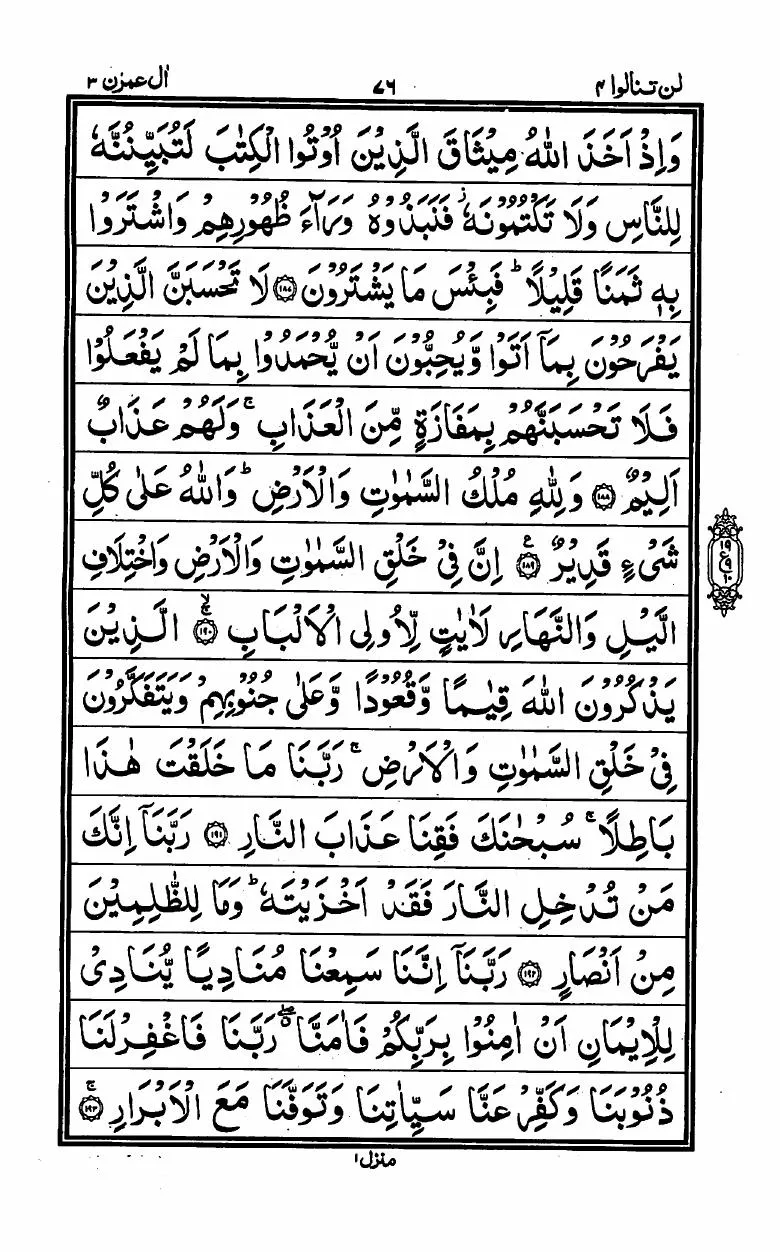 لن تنالوا ۴ ۷۶ اٰل عمرٰن ۳
وَاِذْ اَخَذَ اللّٰهُ مِيْثَاقَ الَّذِيْنَ اُوْتُوا الْكِتٰبَ لَتُبَيِّنُنَّهٗ
لِلنَّاسِ وَلَا تَكْتُمُوْنَهٗ ۡ فَنَبَذُوْهُ وَرَآءَ ظُهُوْرِهِمْ وَاشْتَرَوْا
بِهٖ ثَمَنًا قَلِيْلًا ؕ فَبِئْسَ مَا يَشْتَرُوْنَ ۝۱۸۷ لَا تَحْسَبَنَّ الَّذِيْنَ
يَفْرَحُوْنَ بِمَاۤ اَتَوْا وَّيُحِبُّوْنَ اَنْ يُّحْمَدُوْا بِمَا لَمْ يَفْعَلُوْا
فَلَا تَحْسَبَنَّهُمْ بِمَفَازَةٍ مِّنَ الْعَذَابِ ۚ وَلَهُمْ عَذَابٌ
اَلِيْمٌ ۝۱۸۸ وَلِلّٰهِ مُلْكُ السَّمٰوٰتِ وَالْاَرْضِ ؕ وَاللّٰهُ عَلٰى كُلِّ
شَىْءٍ قَدِيْرٌ ۝۱۸۹ اِنَّ فِىْ خَلْقِ السَّمٰوٰتِ وَالْاَرْضِ وَاخْتِلَافِ
۱۹ ع ۹ ۱۰
الَّيْلِ وَالنَّهَارِ لَاٰيٰتٍ لِّاُولِى الْاَلْبَابِ ۝۱۹۰ ۚۙ الَّذِيْنَ
يَذْكُرُوْنَ اللّٰهَ قِيٰمًا وَّقُعُوْدًا وَّعَلٰى جُنُوْبِهِمْ وَيَتَفَكَّرُوْنَ
فِىْ خَلْقِ السَّمٰوٰتِ وَالْاَرْضِ ۚ رَبَّنَا مَا خَلَقْتَ هٰذَا
بَاطِلًا ۚ سُبْحٰنَكَ فَقِنَا عَذَابَ النَّارِ ۝۱۹۱ رَبَّنَاۤ اِنَّكَ
مَنْ تُدْخِلِ النَّارَ فَقَدْ اَخْزَيْتَهٗ ؕ وَمَا لِلظّٰلِمِيْنَ
مِنْ اَنْصَارٍ ۝۱۹۲ رَبَّنَاۤ اِنَّنَا سَمِعْنَا مُنَادِيًا يُّنَادِىْ
لِلْاِيْمَانِ اَنْ اٰمِنُوْا بِرَبِّكُمْ فَاٰمَنَّا ۖ ق رَبَّنَا فَاغْفِرْ لَنَا
ذُنُوْبَنَا وَكَفِّرْ عَنَّا سَيِّاٰتِنَا وَتَوَفَّنَا مَعَ الْاَبْرَارِ ۝۱۹۳ ۚ
منزل ۱